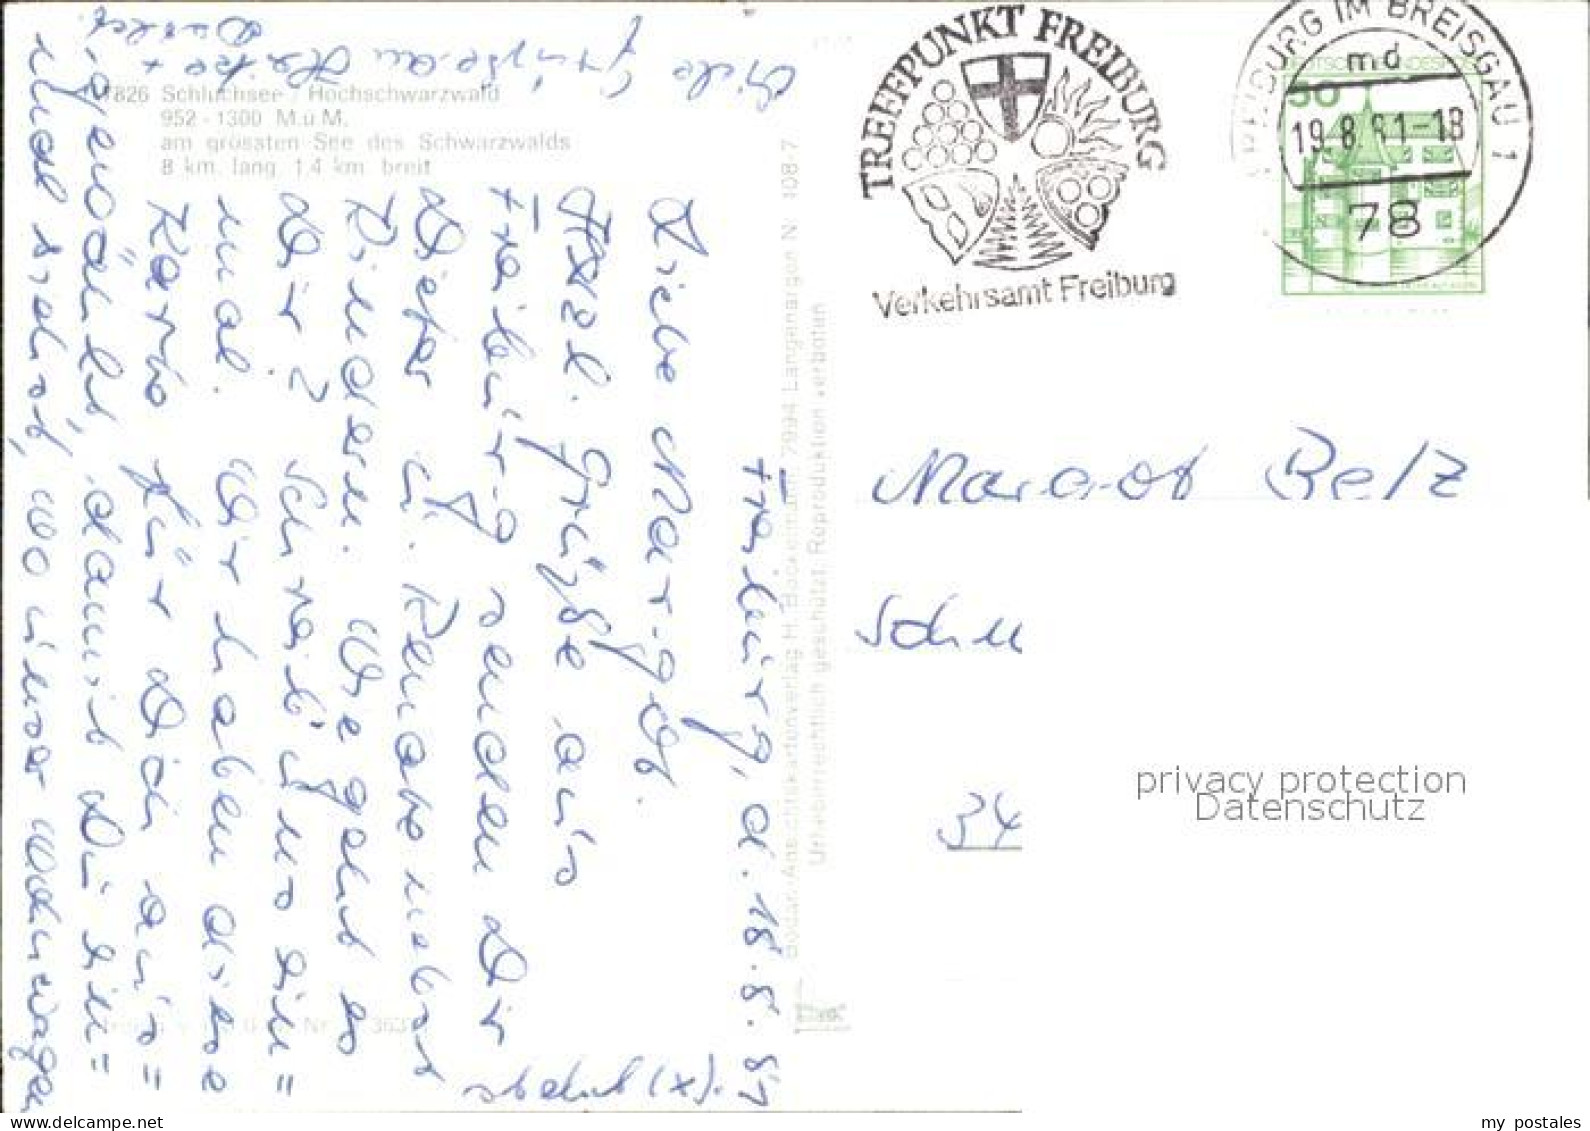 7826 Schluchsee / Hochschwarzwald
952 - 1300 M.ü.M.
am grössten See des Schwarzwalds
8 km. lang 1,4 km breit
TREFFPUNKT FREIBURG
Verkehrsamt Freiburg
FREIBURG IM BREISGAU 1
md
19.8.81-18
78
50
Margot Belz
Schu
34
privacy protection
Datenschutz
Bodan-Ansichtskartenverlag H. Bockelmann 7994 Langenargen Nr. 108-7
Urheberrechtlich geschützt. Reproduktion verboten
Freiburg, d. 18.8.81
Liebe Margot.
Herzl. Grüße aus
Freiburg senden Dir
Dieter u. Renate nebst
Kindern. Wie geht es
Dir? Schreib' uns ein=
mal. Wir haben diese
Karte für Dich aus=
gewählt, damit Du ein=
mal siehst, wo unser Wohnwagen
Viele Grüße an
my postales